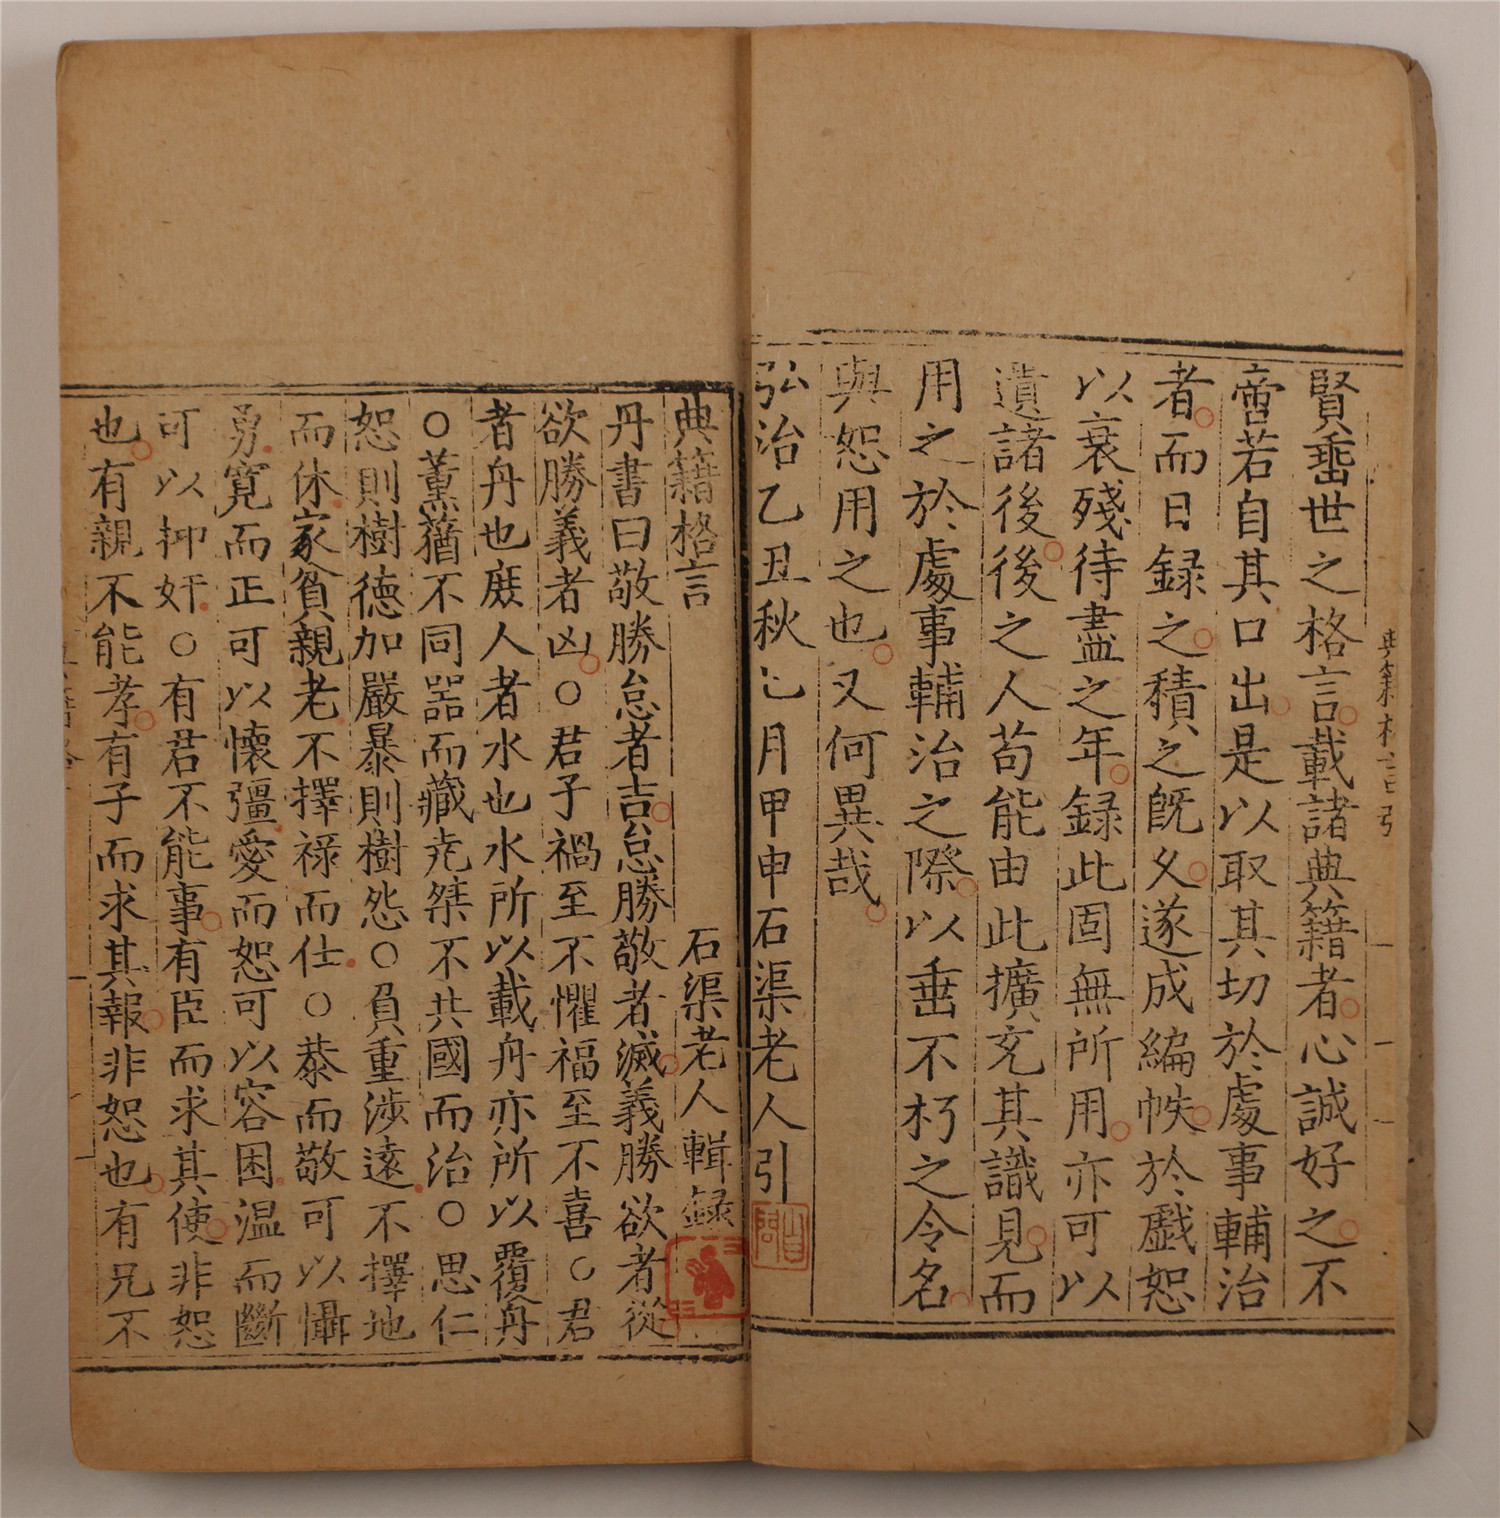 賢垂世之格言載諸典籍者心誠好之不
啻若自其口出是以取其切於處事輔治
者而日録之積之旣久遂成編帙於戲恕
以衰殘待盡之年録此固無所用亦可以
遺諸後後之人苟能由此擴充其識見而
用之於處事輔治之際以垂不朽之令名
與恕用之也又何異哉
弘治乙丑秋七月甲申石渠老人引
典籍格言
石渠老人輯録
丹書曰敬勝怠者吉怠勝敬者滅義勝欲者從
欲勝義者凶○君子禍至不懼福至不喜○君
者舟也庶人者水也水所以載舟亦所以覆舟
○薰蕕不同器而藏尭桀不共國而治○思仁
恕則樹徳加嚴暴則樹怨○負重涉遠不擇地
而休家貧親老不擇祿而仕○恭而敬可以懾
勇寛而正可以懷彊愛而恕可以容困温而斷
可以抑奸○有君不能事有臣而求其使非恕
也有親不能孝有子而求其報非恕也有兄不